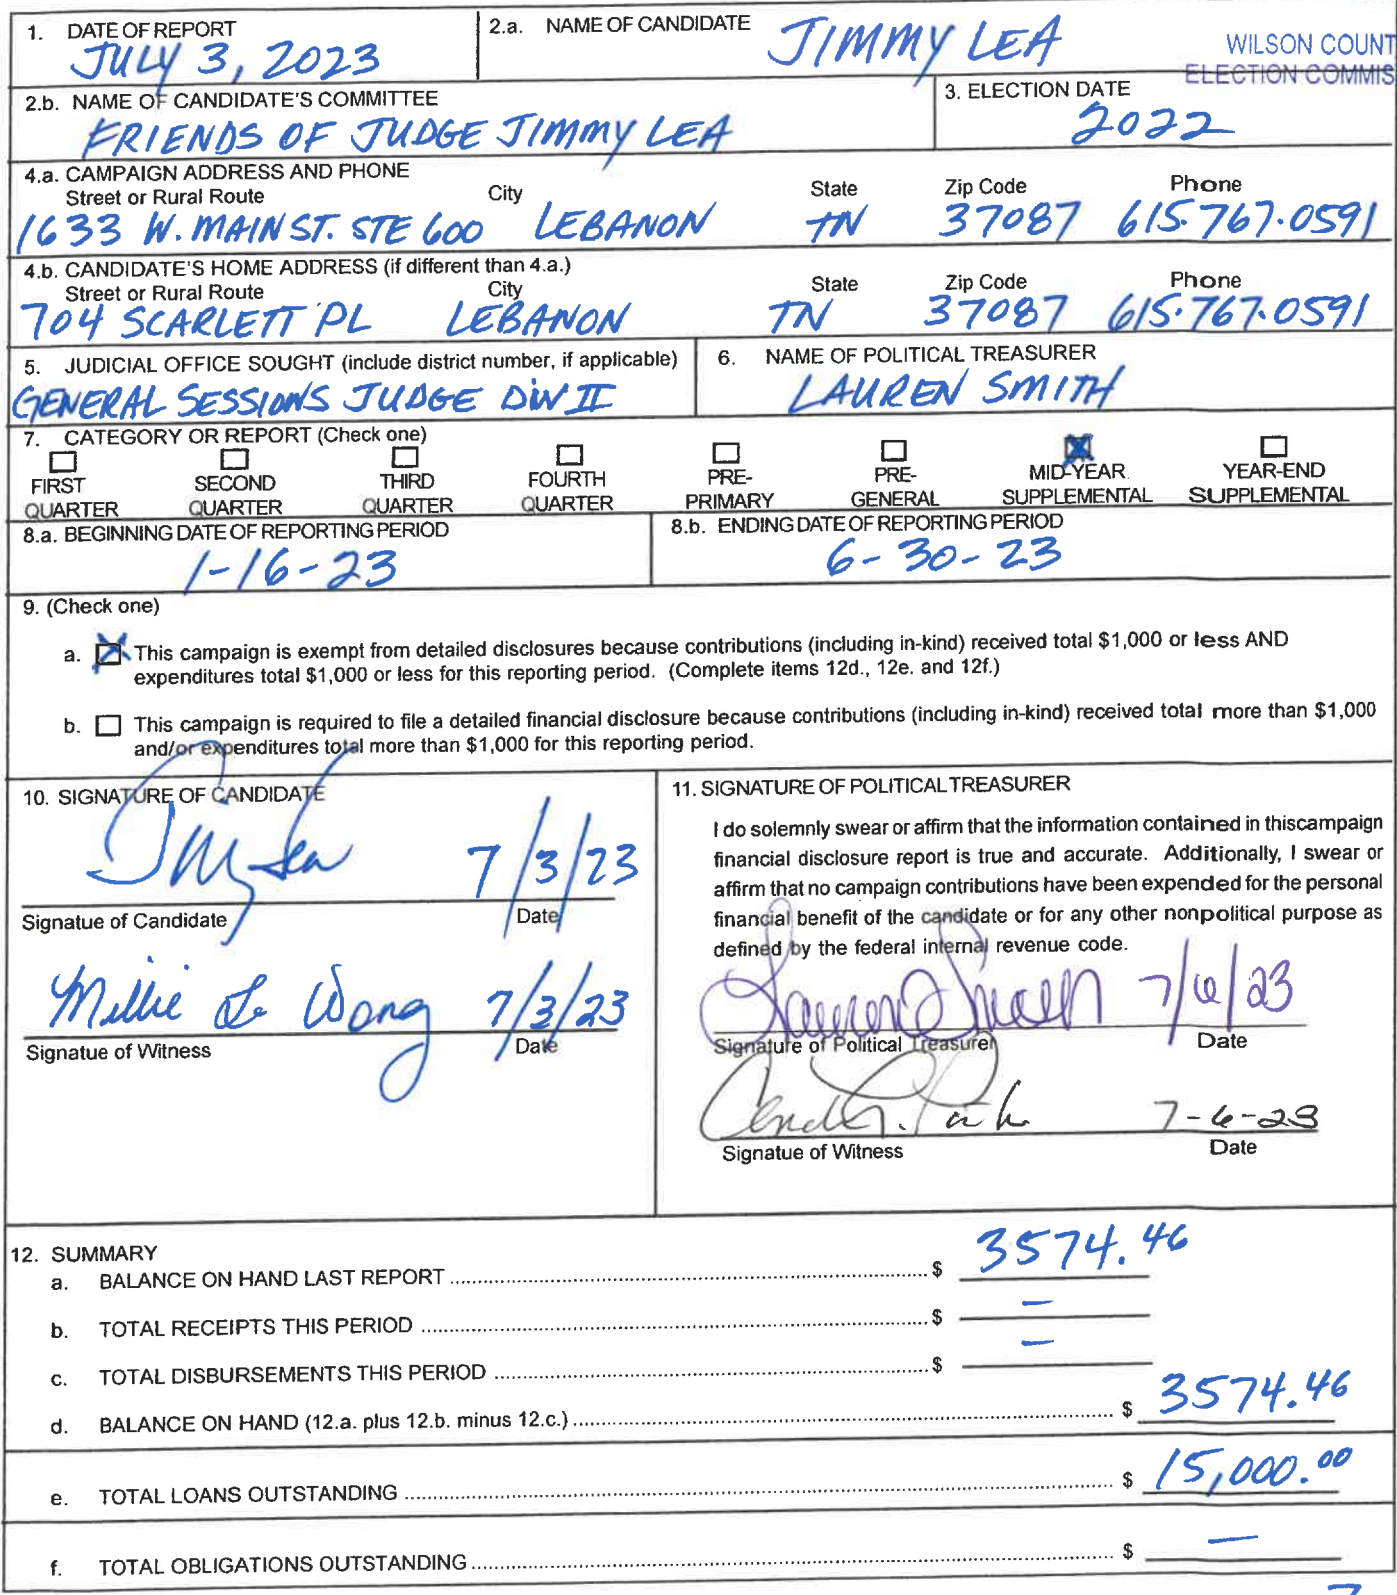 1. DATE OF REPORT
JULY 3, 2023
2.a. NAME OF CANDIDATE
JIMMY LEA
WILSON COUNT
ELECTION COMMIS
2.b. NAME OF CANDIDATE'S COMMITTEE
FRIENDS OF JUDGE JIMMY LEA
3. ELECTION DATE
2022
4.a. CAMPAIGN ADDRESS AND PHONE
Street or Rural Route City State Zip Code Phone
1633 W. MAIN ST. STE 600 LEBANON TN 37087 615.767.0591
4.b. CANDIDATE'S HOME ADDRESS (if different than 4.a.)
Street or Rural Route City State Zip Code Phone
704 SCARLETT PL LEBANON TN 37087 615.767.0591
5. JUDICIAL OFFICE SOUGHT (include district number, if applicable)
GENERAL SESSIONS JUDGE DIV II
6. NAME OF POLITICAL TREASURER
LAUREN SMITH
7. CATEGORY OR REPORT (Check one)
FIRST QUARTER
SECOND QUARTER
THIRD QUARTER
FOURTH QUARTER
PRE-PRIMARY
PRE-GENERAL
MID-YEAR SUPPLEMENTAL
YEAR-END SUPPLEMENTAL
8.a. BEGINNING DATE OF REPORTING PERIOD
1-16-23
8.b. ENDING DATE OF REPORTING PERIOD
6-30-23
9. (Check one)
a. This campaign is exempt from detailed disclosures because contributions (including in-kind) received total $1,000 or less AND
expenditures total $1,000 or less for this reporting period. (Complete items 12d., 12e. and 12f.)
b. This campaign is required to file a detailed financial disclosure because contributions (including in-kind) received total more than $1,000
and/or expenditures total more than $1,000 for this reporting period.
10. SIGNATURE OF CANDIDATE
7/3/23
Signatue of Candidate Date
Millie 7/3/23
Signatue of Witness Date
11. SIGNATURE OF POLITICAL TREASURER
I do solemnly swear or affirm that the information contained in thiscampaign
financial disclosure report is true and accurate. Additionally, I swear or
affirm that no campaign contributions have been expended for the personal
financial benefit of the candidate or for any other nonpolitical purpose as
defined by the federal internal revenue code.
7/6/23
Signature of Political Treasurer Date
7-6-23
Signatue of Witness Date
12. SUMMARY
a. BALANCE ON HAND LAST REPORT $ 3574.46
b. TOTAL RECEIPTS THIS PERIOD $ —
c. TOTAL DISBURSEMENTS THIS PERIOD $ —
d. BALANCE ON HAND (12.a. plus 12.b. minus 12.c.) $ 3574.46
e. TOTAL LOANS OUTSTANDING $ 15,000.00
f. TOTAL OBLIGATIONS OUTSTANDING $ —